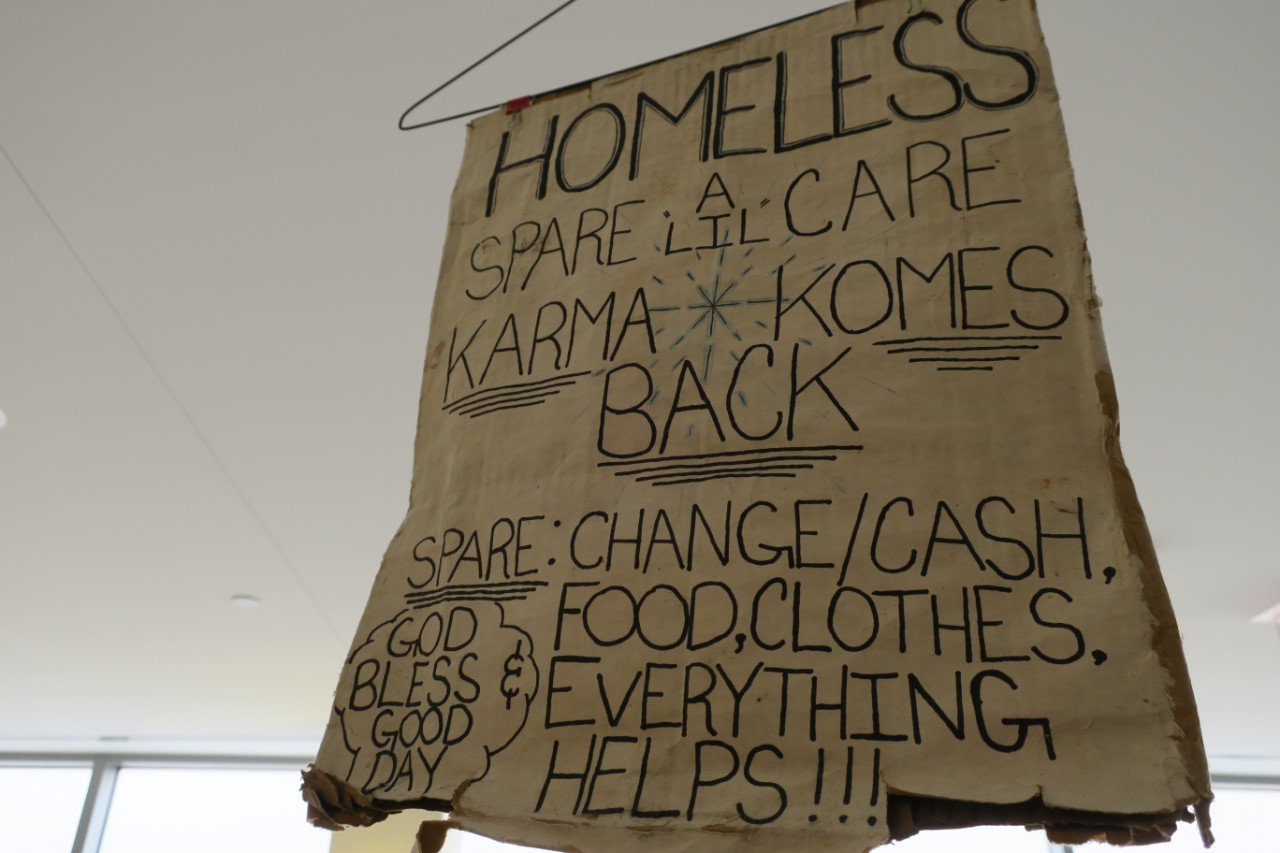 HOMELESS
SPARE A "LIL" CARE
KARMA KOMES
BACK
SPARE: CHANGE/CASH,
FOOD, CLOTHES,
EVERYTHING
HELPS!!!
GOD
BLESS &
GOOD
DAY